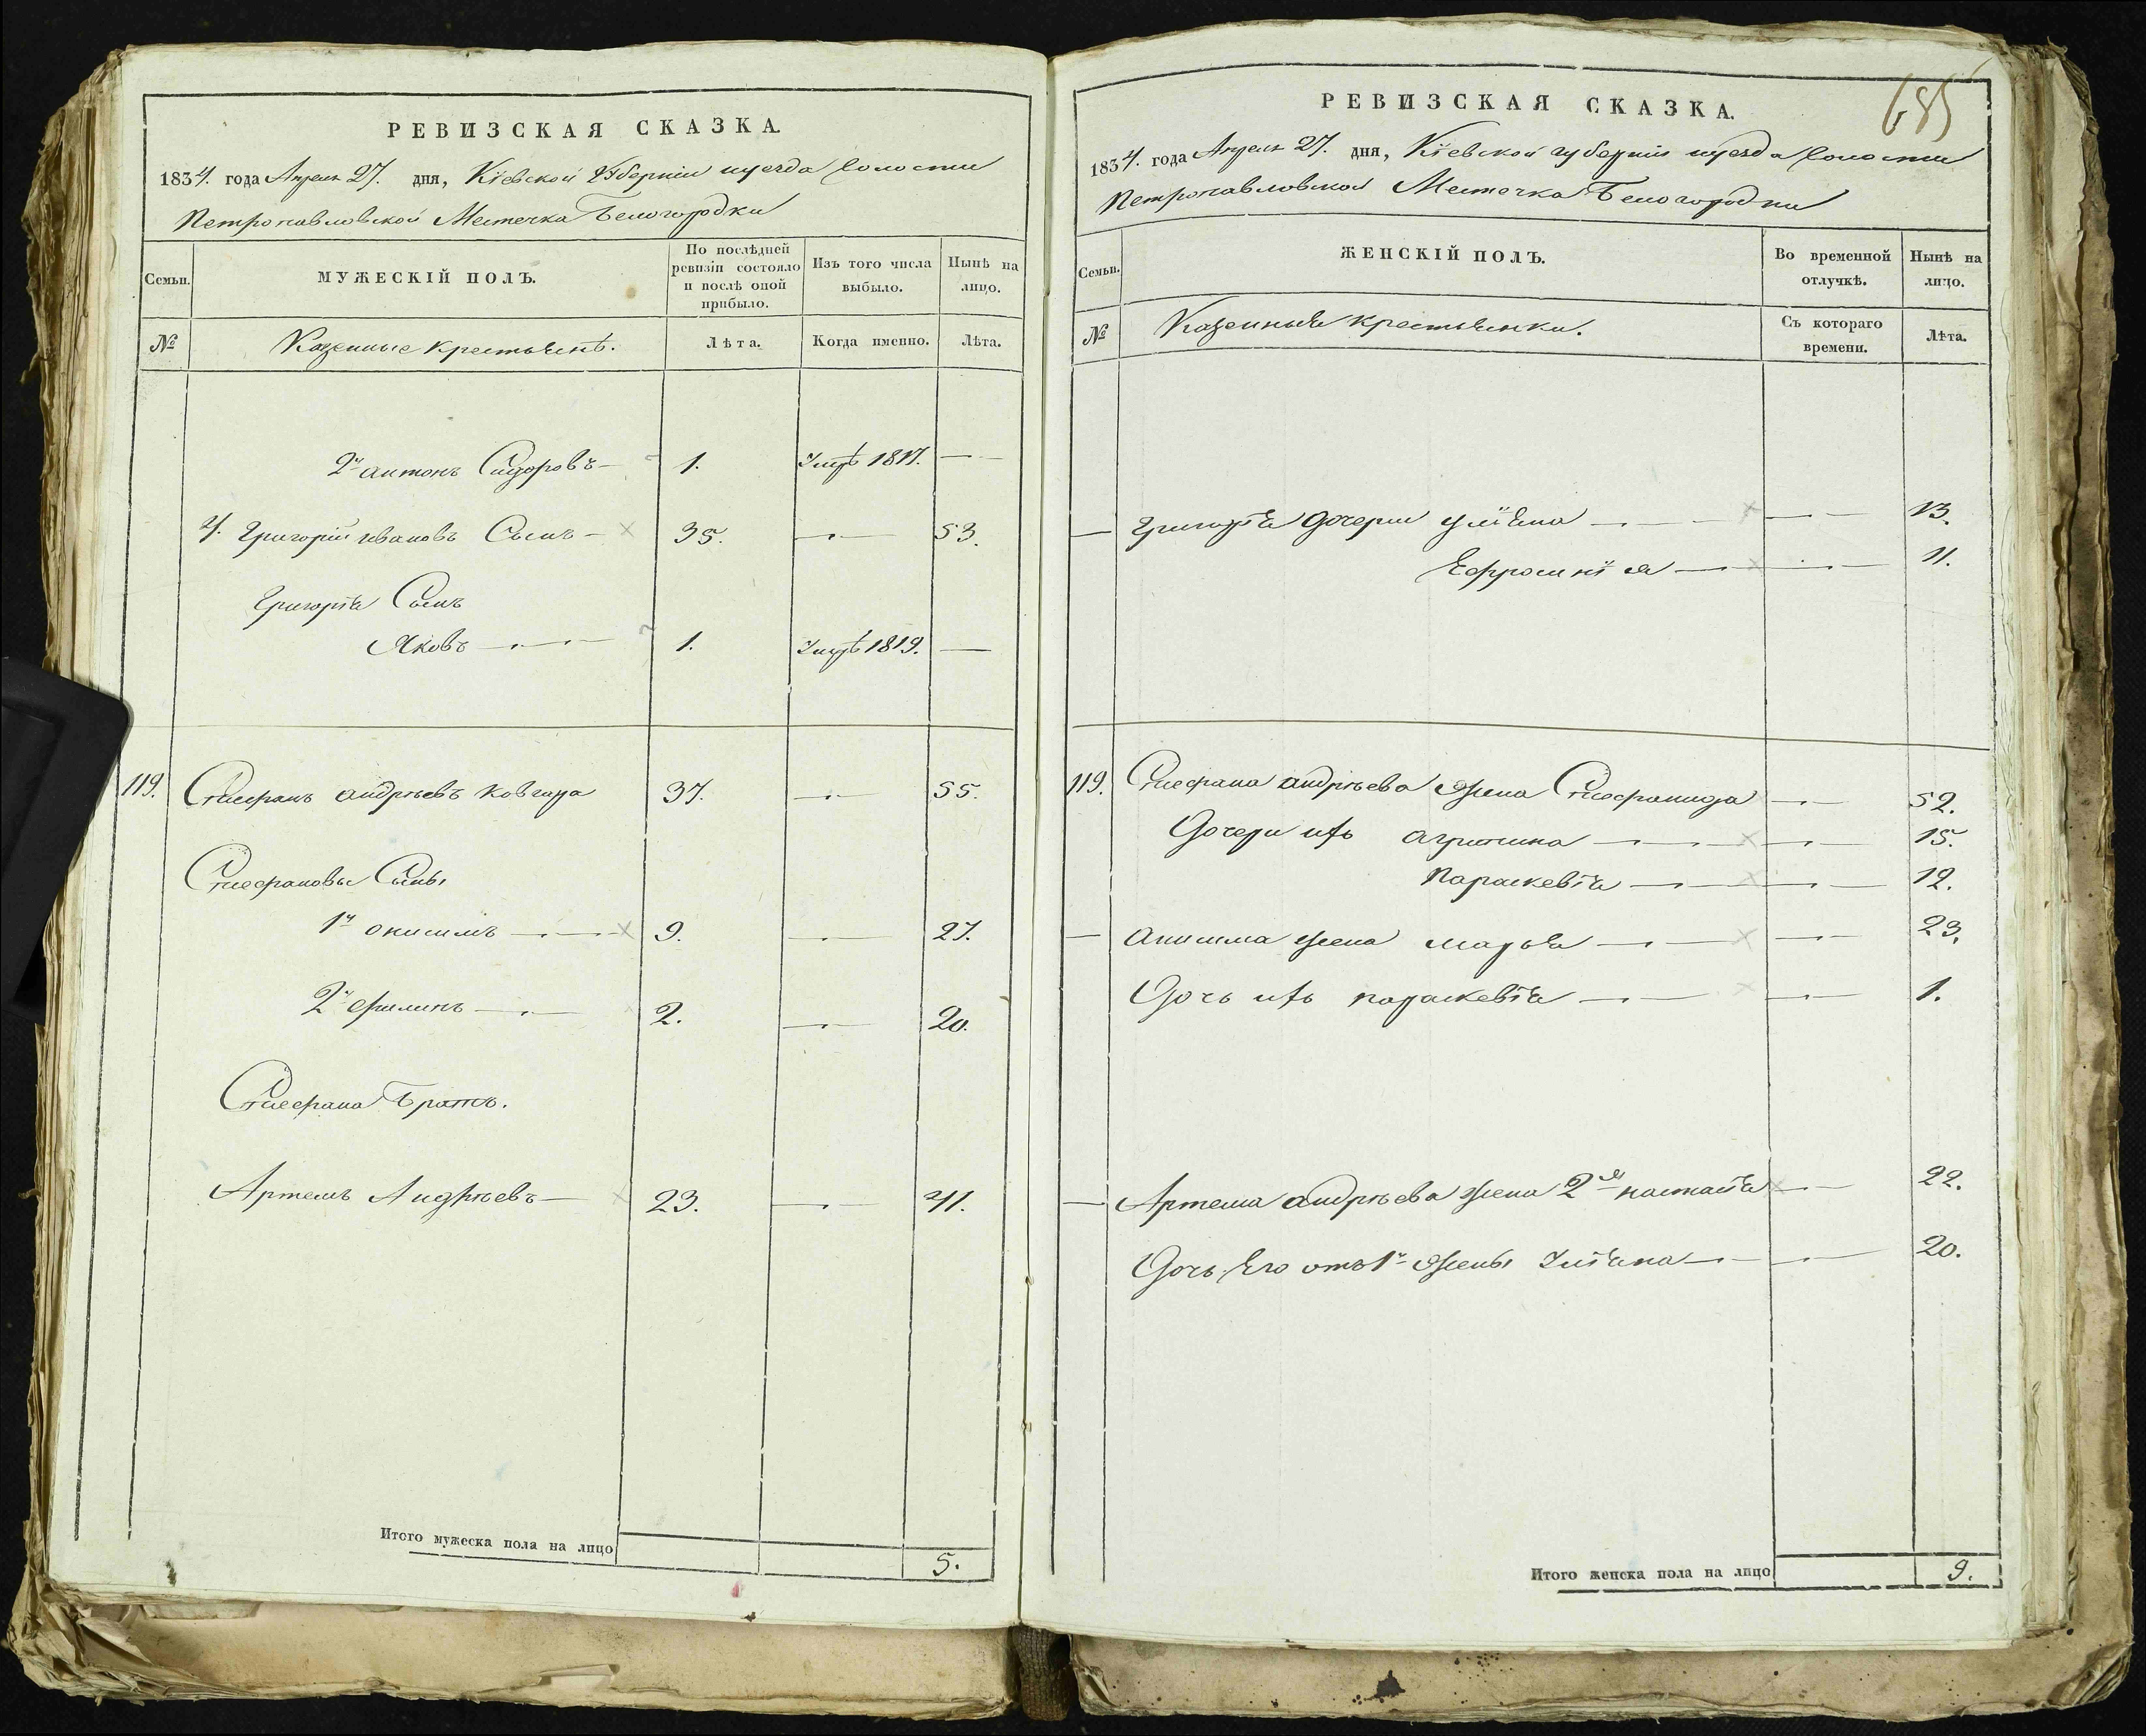 РЕВИЗСКАЯ СКАЗКА.
1834. года Апреля 27. дня, Кіевской Губерніи и уезда волости
Петропавловской Местечка Белогородки
Семьи.
МУЖЕСКІЙ ПОЛЪ.
По послѣдней ревизіи состояло и послѣ оной прибыло.
Изъ того числа выбыло.
Нынѣ на лицо.
№
Казенные крестьянѣ.
Лѣта.
Когда именно.
Лѣта.
2й антонъ Сидоровъ — 1. 1817. —
4. Григорій ивановъ Сынъ — 35. — 53.
Григорія Сынъ
Яковъ — 1. 1819. —
119. Стефанъ андрѣевъ Ковгара 37. — 55.
Стефановы Сыны
1й онисимъ — 9. — 27.
2й филипъ — 2. — 20.
Стефана Братъ.
Артемъ Андрѣевъ — 23. — 41.
Итого мужеска пола на лицо 5.
685
РЕВИЗСКАЯ СКАЗКА.
1834. года Апреля 27. дня, Кіевской губерніи и уезда волости
Петропавловской Местечка Белогородки
Семьи.
ЖЕНСКІЙ ПОЛЪ.
Во временной отлучкѣ.
Нынѣ на лицо.
№
Казенныя крестьянки.
Съ котораго времени.
Лѣта.
— Григорія дочери уліяна — — 13.
Ефросинія — — 11.
119. Стефана андрѣева жена Стефанида — 52.
Дочери ихъ агрипина — — 15.
Параскевія — — 12.
— анисима жена марья — — 23.
Дочь ихъ параскевія — — 1.
— Артема андрѣева жена 2я настасія — 22.
Дочь Его отъ 1й жены Уліяна — — 20.
Итого женска пола на лицо 9.